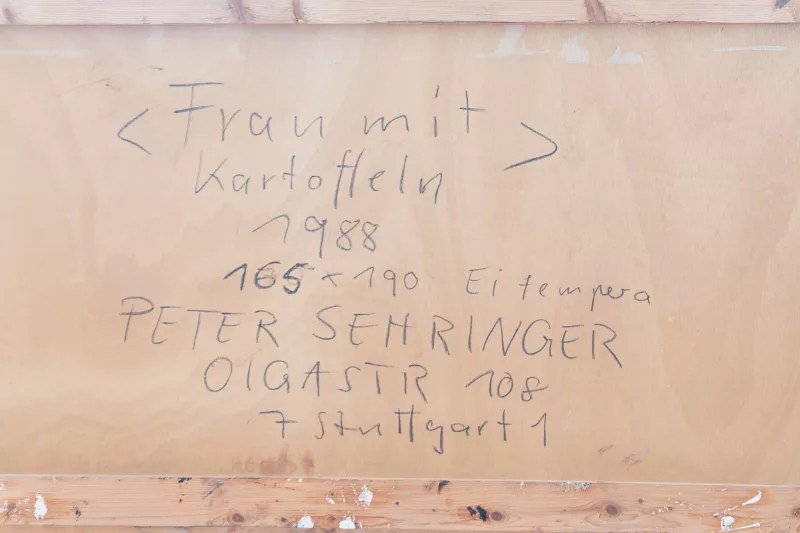 < Frau mit >
Kartoffeln
1988
165 × 190 Eitempera
PETER SEHRINGER
OlGASTR 108
7 Stuttgart 1